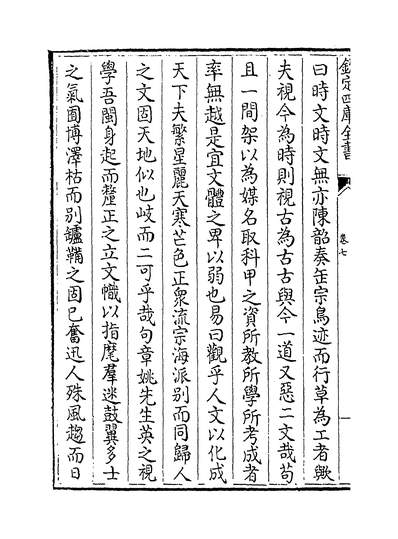 欽定四庫全書
卷七
曰時文時文無亦陳韶奏缶宗鳥迹而行草為工者歟
夫視今為時則視古為古古與今一道又惡二文哉苟
且一間架以為媒名取科甲之資所教所學所考成者
率無越是宜文體之卑以弱也易曰觀乎人文以化成
天下夫繁星麗天寒芒色正衆流宗海派別而同歸人
之文固天地似也岐而二可乎哉句章姚先生英之視
學吾閩身起而釐正之立文幟以指麾羣迷鼓翼多士
之氣囿博澤枯而別鑪鞴之固已奮迅人殊風趨而日